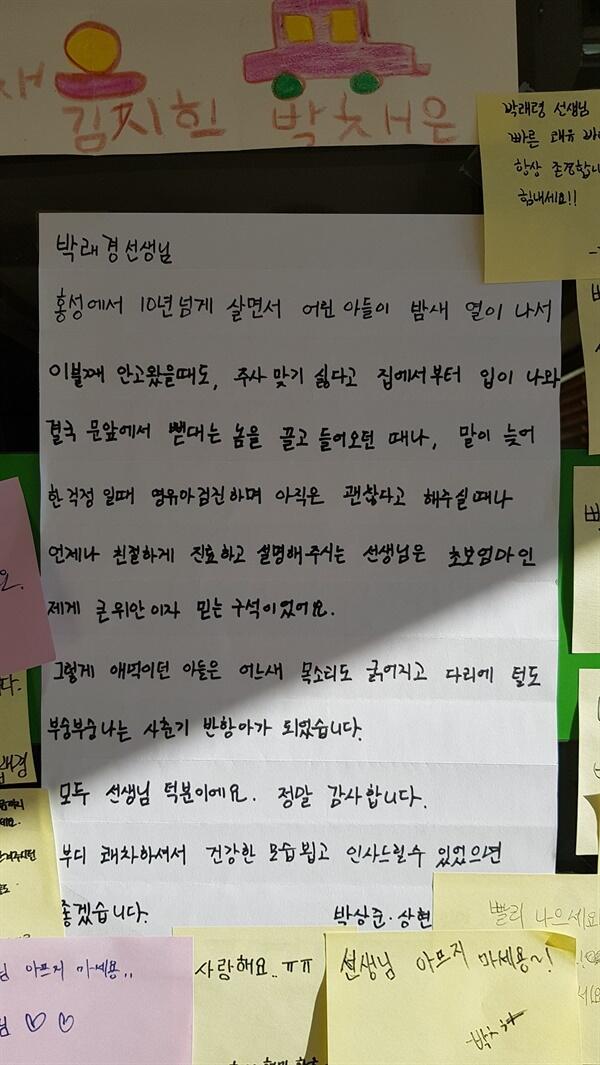 재
김지힌 박채은
박래경 선생님
빠른 쾌유 바
항상 존경합니
힘내세요!!
박래경선생님
홍성에서 10년넘게 살면서 어린 아들이 밤새 열이 나서
이불째 안고왔을때도, 주사 맞기 싫다고 집에서부터 입이 나와
결국 문앞에서 뻗대는 놈을 끌고 들어오던 때나, 말이 늦어
한걱정 일때 영유아검진하며 아직은 괜찮다고 해주실때나
언제나 친절하게 진료하고 설명해주시는 선생님은 초보엄마인
제게 큰위안이자 믿는구석이었어요.
그렇게 애먹이던 아들은 어느새 목소리도 굵어지고 다리에 털도
부숭부숭나는 사춘기 반항아가 되었습니다.
모두 선생님 덕분이에요. 정말 감사합니다.
부디 쾌차하셔서 건강한 모습뵙고 인사드릴수 있었으면
좋겠습니다. 박상준·상현
요.
다.
빨리 나으세요
님 아프지 마세용..
님 ♡ ♡
사랑해요..ㅠㅠ
선생님 아프지 마세용~!